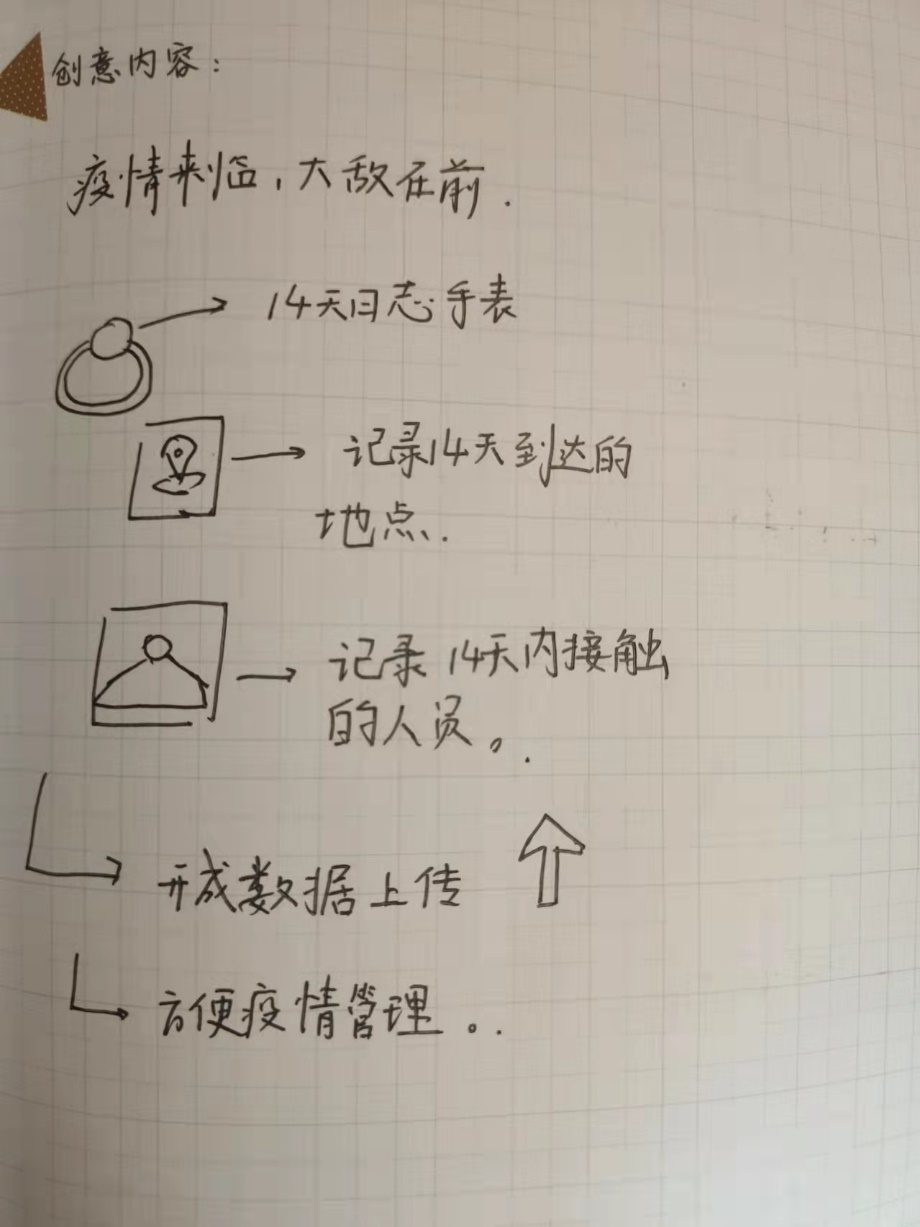 创意内容：
疫情来临，大敌在前.
14天日志手表
记录14天到达的
地点.
记录14天内接触
的人员。.
开成数据上传
方便疫情管理。.